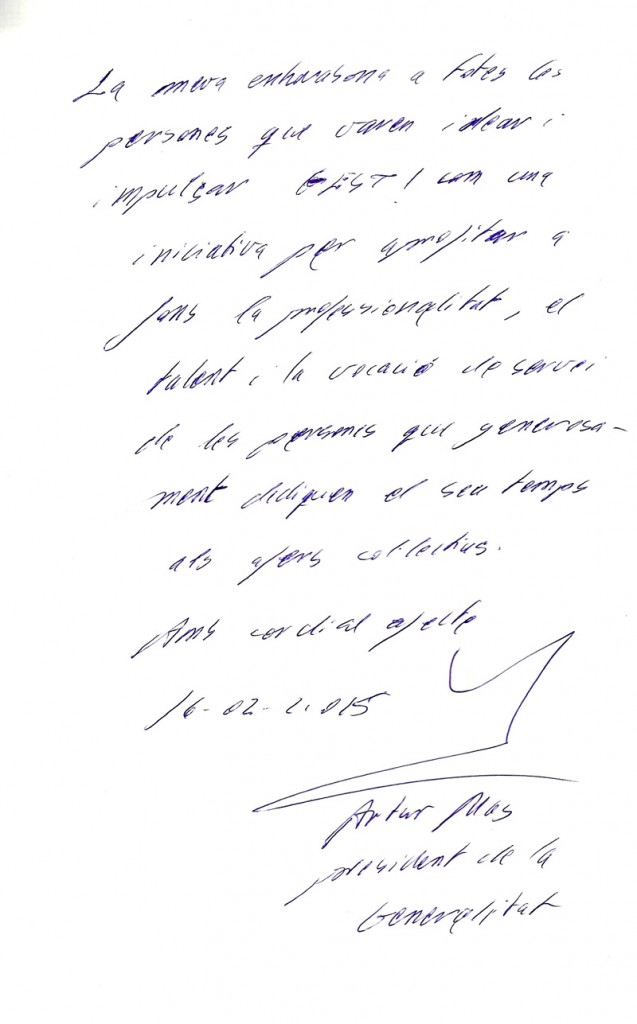 La meva enhorabona a totes les
persones que varen idear i
impulsar GEST! com una
iniciativa per aprofitar a
fons la professionalitat, el
talent i la vocació de servei
de les persones que generosa-
ment dediquen el seu temps
als afers col·lectius.
Amb cordial afecte
16-02-2.015
Artur Mas
president de la
Generalitat